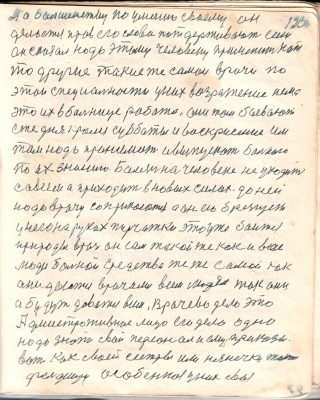 123
На большенству по умению своему он
делается прав его слова поддерживают если
он считал надо этому человеку применить как
то другие такие же самои врачи по
этой специальности у них возражение нема
это их в больнице работа. они там бывают
сте дня кроме субботы и воскресение им
там надо принимать и выпускать больного
По их знанию Болезнь на человеке не уходит
совсем а приходит в новых силах до ней
надо врачу соприкасатся а он ею брезгует
у него на руках перчатки это уже боится
природы врач он сам такой же как и все
люди больной средства те же самой как
они делались врачами всем людям так они
и будут довать всем. Врачево дело это
Административное лицо его дело одно
надо знать свой персонал и ему приказы
вать как своей сестры или нянечка
особенная у них своя